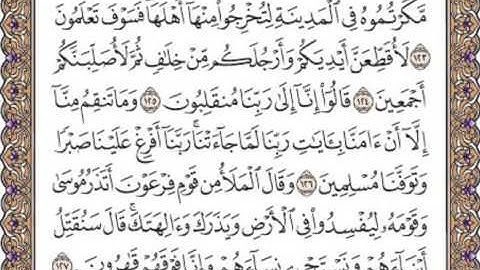 مَّكَرْتُمُوهُ فِي ٱلْمَدِينَةِ لِتُخْرِجُوا۟ مِنْهَآ أَهْلَهَا فَسَوْفَ تَعْلَمُونَ
١٢٣ لَأُقَطِّعَنَّ أَيْدِيَكُمْ وَأَرْجُلَكُم مِّنْ خِلَٰفٍ ثُمَّ لَأُصَلِّبَنَّكُمْ
أَجْمَعِينَ ١٢٤ قَالُوٓا۟ إِنَّآ إِلَىٰ رَبِّنَا مُنقَلِبُونَ ١٢٥ وَمَا تَنقِمُ مِنَّآ
إِلَّآ أَنْ ءَامَنَّا بِـَٔايَٰتِ رَبِّنَا لَمَّا جَآءَتْنَا ۚ رَبَّنَآ أَفْرِغْ عَلَيْنَا صَبْرًا
وَتَوَفَّنَا مُسْلِمِينَ ١٢٦ وَقَالَ ٱلْمَلَأُ مِن قَوْمِ فِرْعَوْنَ أَتَذَرُ مُوسَىٰ
وَقَوْمَهُۥ لِيُفْسِدُوا۟ فِي ٱلْأَرْضِ وَيَذَرَكَ وَءَالِهَتَكَ ۚ قَالَ سَنُقَتِّلُ
أَبْنَآءَهُمْ وَنَسْتَحْيِۦ نِسَآءَهُمْ وَإِنَّا فَوْقَهُمْ قَٰهِرُونَ ١٢٧